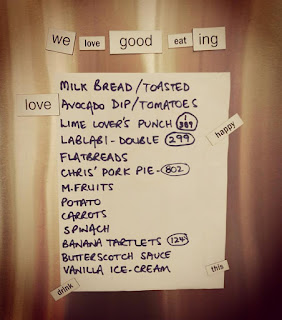 we love good eat ing
love
MILK BREAD/TOASTED
AVOCADO DIP/TOMATOES
LIME LOVER'S PUNCH 1/389
LABLABI-DOUBLE 299
FLATBREADS
CHRIS' PORK PIE-802
M.FRUITS
POTATO
CARROTS
SPINACH
BANANA TARTLETS 124
BUTTERSCOTCH SAUCE
VANILLA ICE-CREAM
happy
this
drink